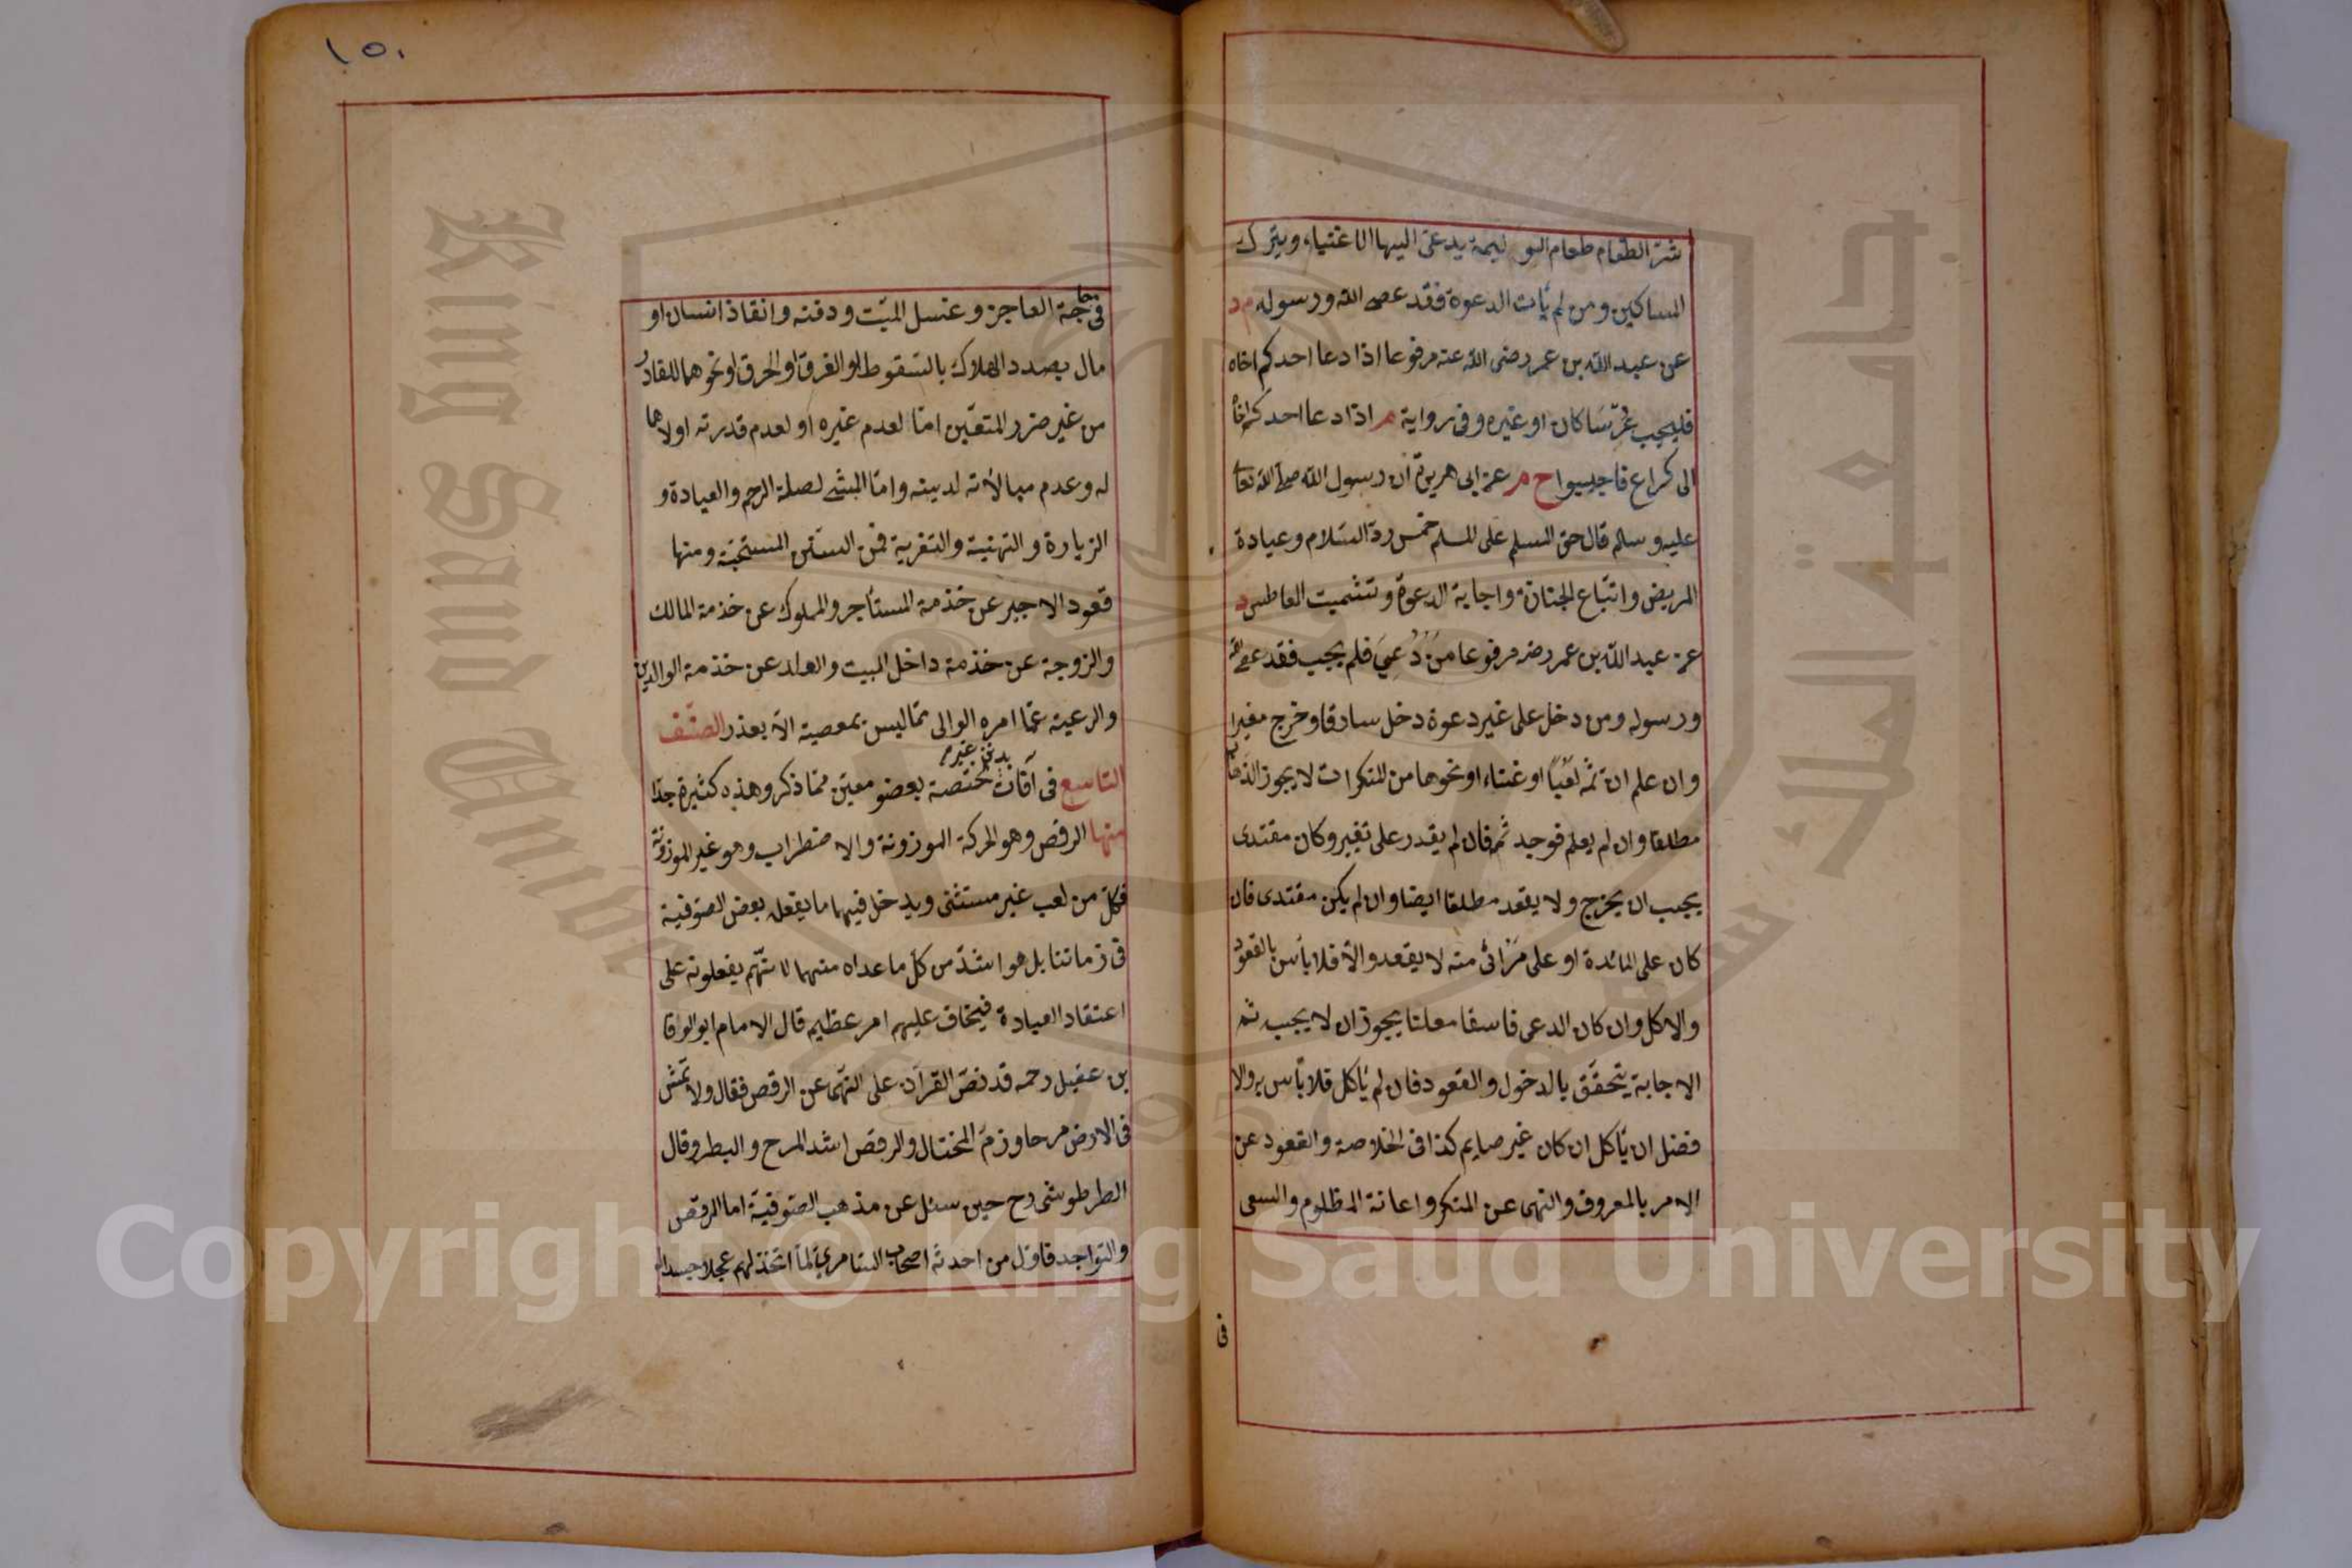 شرّ الطعام طعام الوليمة يدعى اليها الاغنياء ويترك
المساكين ومن لم يأت الدعوة فقد عصى الله ورسوله م د
عن عبد الله بن عمر رضى الله عنه مرفوعا اذا دعا احدكم اخاه
فليجب عرسا كان او غيره وفى رواية م اذا دعا احدكم اخاه
الى كراع فاجيبوا خ م عن ابى هريرة ان رسول الله صلى الله تعالى
عليه وسلم قال حق المسلم على المسلم خمس ردّ السّلام وعيادة
المريض واتّباع الجنازة واجابة الدعوة وتشميت العاطس د
عن عبد الله بن عمر رضـ مرفوعا مَنْ دُعِيَ فلم يجب فقد عصى الله
ورسوله ومن دخل على غير دعوة دخل سارقا وخرج مغيرا
وان علم ان ثمّه لَعِباً او غناء او نحوهما من المنكرات لا يجوز الذهاب
مطلقا وان لم يعلم فوجد ثمّ فان لم يقدر على تغيير وكان مقتدى
يجب ان يخرج ولا يقعد مطلقا ايضا وان لم يكن مقتدى فان
كان على المائدة او على مَرْائ منه لا يقعد والّا فلا بأس بالقعود
والاكل وان كان الدعى فاسقا معلنا يجوز ان لا يجيب ثم
الاجابة يتحقّق بالدخول والقعود فان لم يأكل فلا بأس به والا
فضل ان يأكل ان كان غير صايم كذا فى الخلاصة والقعود عن
الامر بالمعروف والنهى عن المنكر واعانة المظلوم والسعى
فى
١٥٠
فى حاجة العاجز وغسل الميّت ودفنه وانقاذ انسان او
مال بصدد الهلاك بالسّقوط او الغرق او الحرق او نحوهما للقادر
من غير ضرر المتعيّن امّا لعدم غيره او لعدم قدرته او لاهما
له وعدم مبالاته لدينه وامّا المشى لصلة الرحم والعيادة و
الزيارة والتهنية والتعزية فمن السنن المستحبّة ومنها
قعود الاجير عن خذمة المستأجر والمملوك عن خذمة المالك
والزوجة عن خذمة داخل البيت والولد عن خذمة الوالدين
والرعية عمّا امره الوالى ممّا ليس بمعصية الّا بعذر الصنف
التاسع فى آفات بدن غير مختصة بعضو معيّن ممّا ذكر وهذه كثيرة جدّا
منها الرقص وهو الحركة الموزونة والاضطراب وهو غير الموزونة
فكلّ من لعب غير مستثنى ويدخل فيهما ما يفعله بعض الصّوفية
فى زماننا بل هو اشدّ من كلّ ما عداه منهما لانّهم يفعلونه على
اعتقاد العبادة فيخاف عليهم امر عظيم قال الامام ابو الوفا
بن عقيل رحمه قد نصّ القرآن على النهى عن الرقص فقال ولا تمش
فى الارض مرحا وذمّ المختال والرقص اشد المرح والبطر وقال
الطرطوشى رح حين سئل عن مذهب الصّوفية اما الرقص
والتواجد فاوّل من احدثه اصحاب السّامرىّ لمّا اتّخذ لهم عجلا جسدا له
جامعة الملك سعود
King Saud University
1957
Copyright © King Saud University